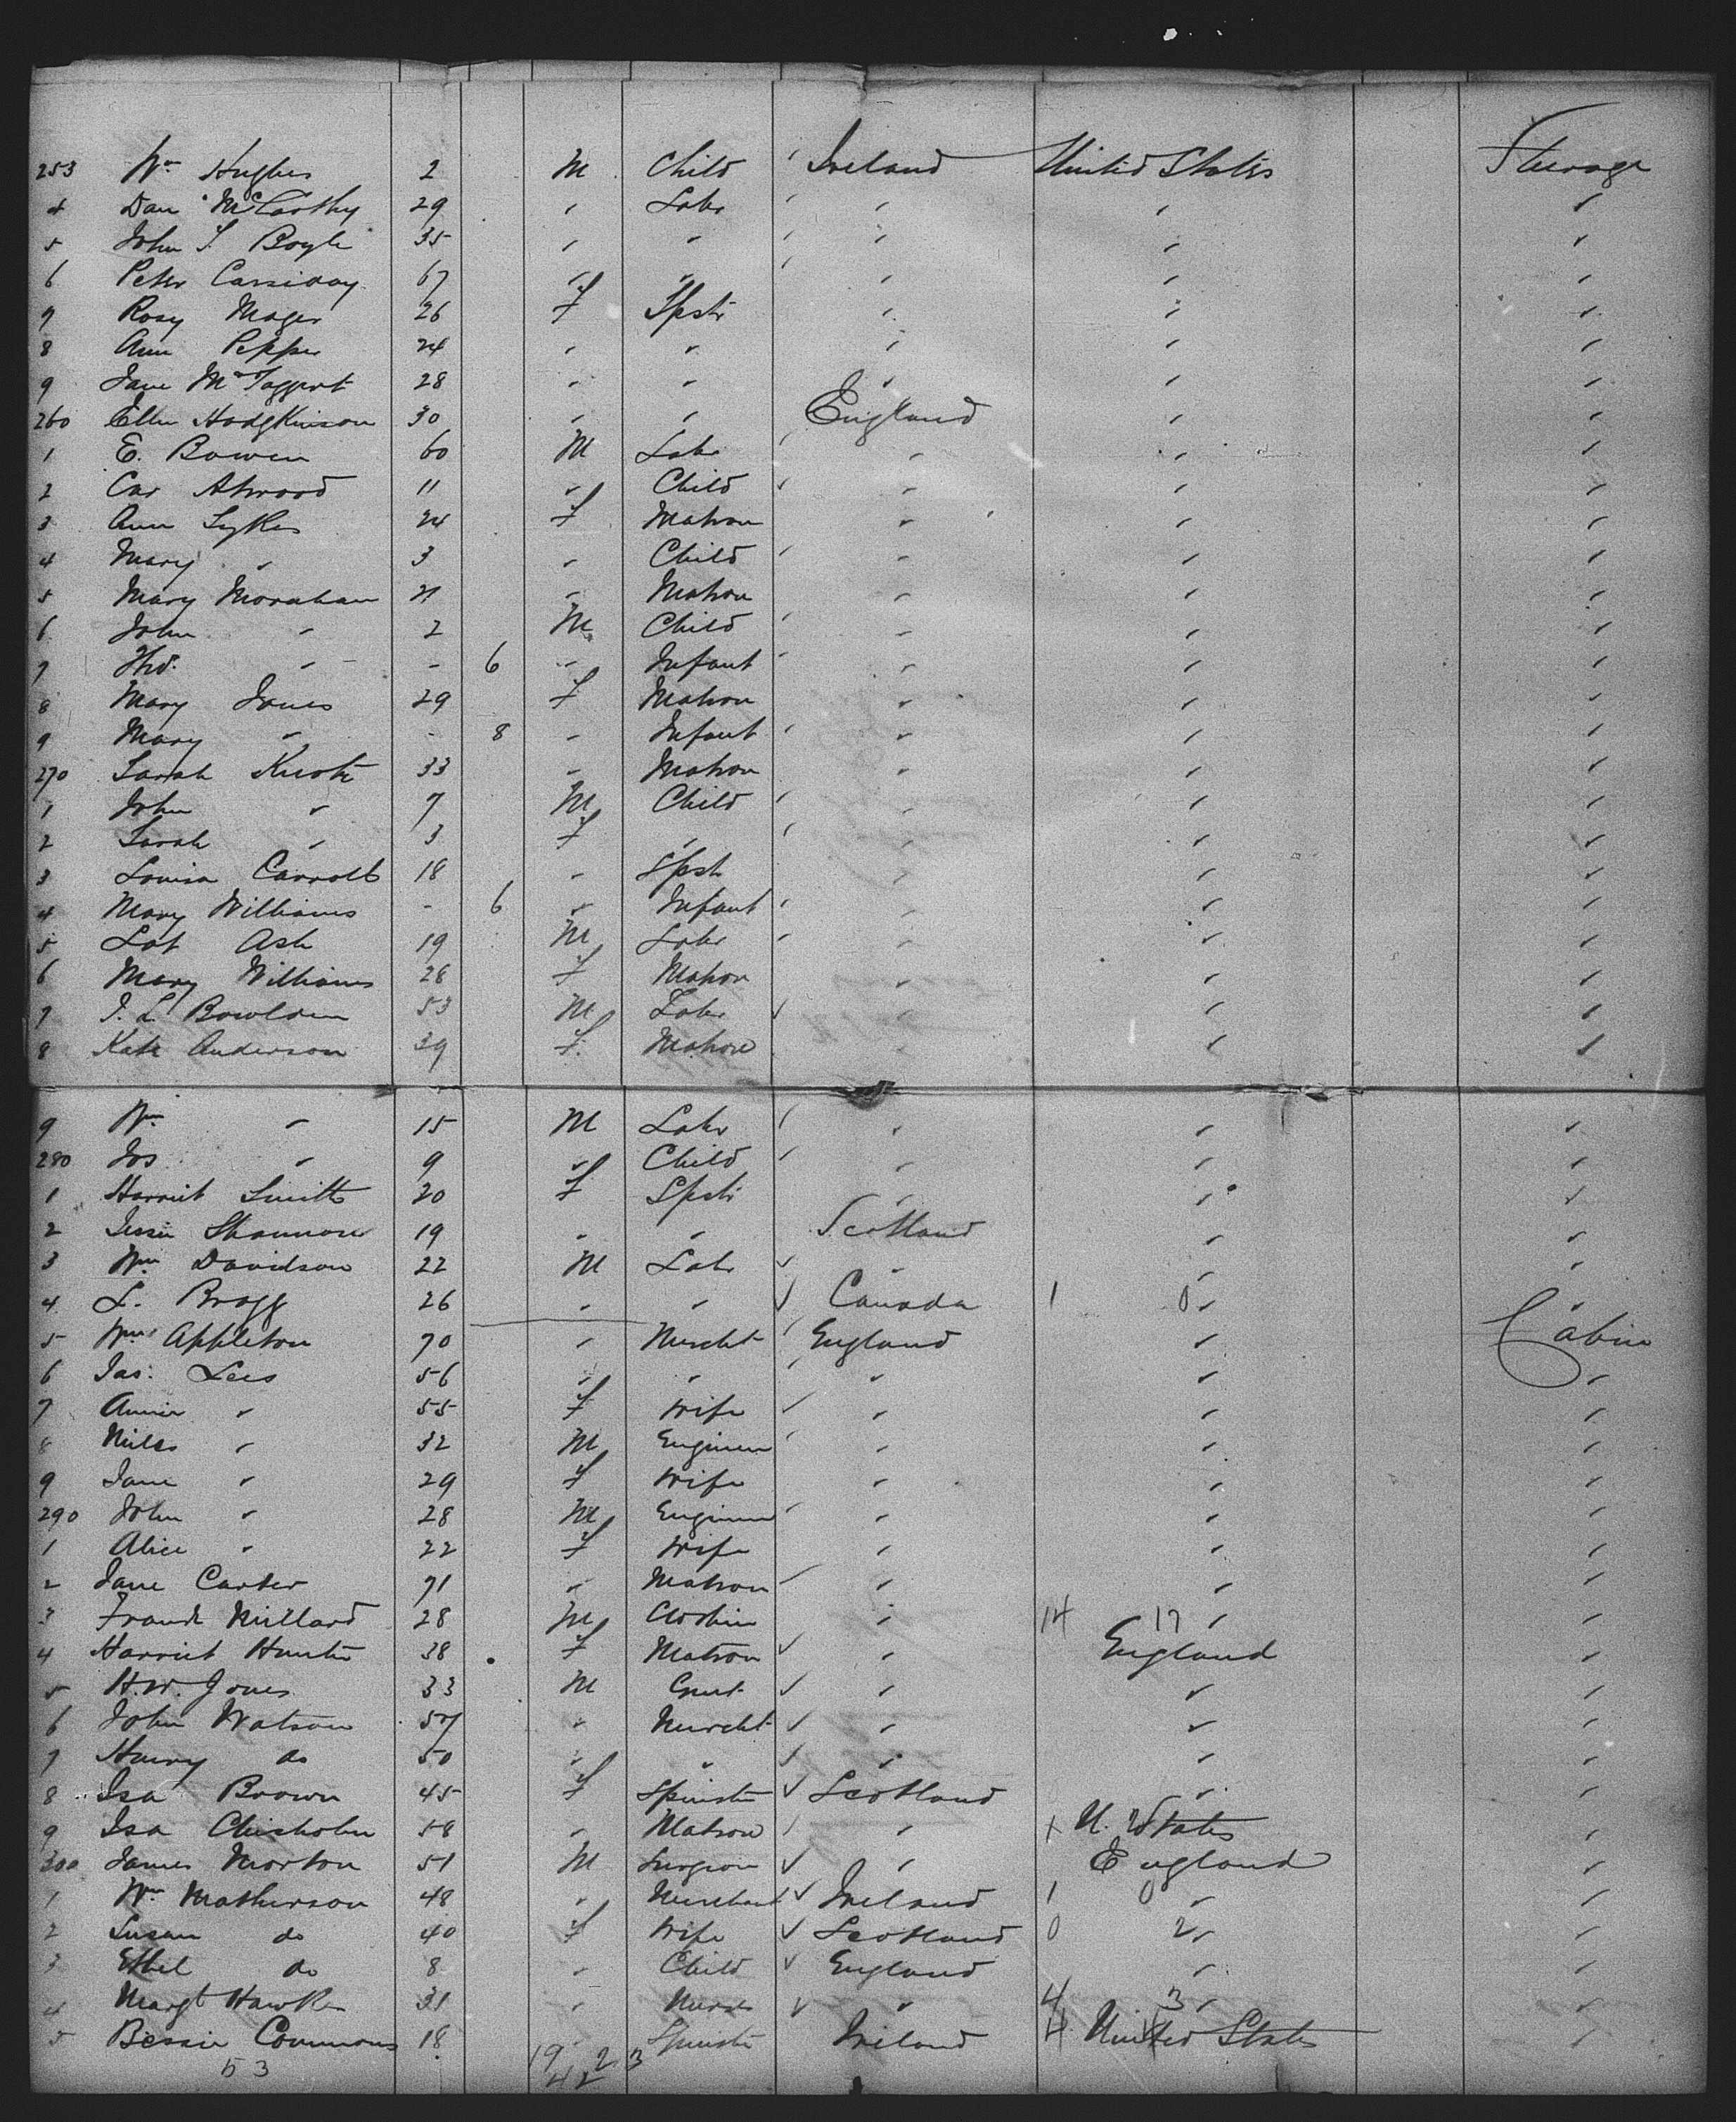 253 Wm Hughes 2 M Child Ireland United States Steerage
4 Dan McCarthy 29 " Labr " " "
5 John S. Boyle 35 " " " " "
6 Peter Cassiday 67 " " " " "
7 Rosy Mager 26 F Spstr " " "
8 Ann Pepper 24 " " " " "
9 Jane McTaggart 28 " " " " "
260 Ellen Hodgkinson 30 " " England " "
1 E. Bowen 60 M Labr " " "
2 Car Atwood 11 " Child " " "
3 Ann Sykes 24 F Matron " " "
4 Mary " 3 " Child " " "
5 Mary Monahan 21 " Matron " " "
6 John " 2 M Child " " "
7 Thos. " - 6 " Infant " " "
8 Mary Jones 29 F Matron " " "
9 Mary " - 8 " Infant " " "
270 Sarah 33 " Matron " " "
1 John " 7 M Child " " "
2 Sarah " 3 F " " " "
3 Louisa Carroll 18 " Spst " " "
4 Mary Williams - 6 " Infant " " "
5 Lot Ash 19 M Labr " " "
6 Mary Williams 26 F Matron " " "
7 J. L. Bowlden 53 M Labr " " "
8 Kate Anderson 39 F. Matron " " "
9 Wm " 15 M Labr " " "
280 Jos " 9 " Child " " "
1 Harriet Smith 20 F Spstr " " "
2 Jessie Shannon 19 " " Scotland " "
3 Wm Davidson 22 M Labr " " "
4 L. Bragg 26 " " Canada 1 0 " "
5 Wm Appleton 70 " Mercht England " Cabin
6 Jas. Lees 56 " " " " "
7 Annie " 55 F Wife " " "
8 Miles " 32 M Engineer " " "
9 Jane " 29 F Wife " " "
290 John " 28 M Engineer " " "
1 Alice " 22 F Wife " " "
2 Jane Carter 71 " Matron " " "
3 Frank Millard 28 M Clothier " 14 17 " "
4 Harriet Hunter 38 F Matron " England "
5 H. W. Jones 33 M Gent " " "
6 John Watson 57 " Mercht " " "
7 Harry do 50 " " " " "
8 Isa Brown 45 F Spinster Scotland " "
9 Isa Chisholm 58 " Matron " 1 U. States "
300 James Morton 51 M Surgeon " England "
1 Wm Matherson 48 " Merchant Ireland 1 0 " "
2 Susan do 40 F Wife Scotland 0 2 " "
3 Ethel do 8 " Child England " "
4 Margt Hawke 31 " Nurse " 4 3 " "
5 Bessie Commons 18 " Spinster Ireland 4 United States "
53 19 2 3
42